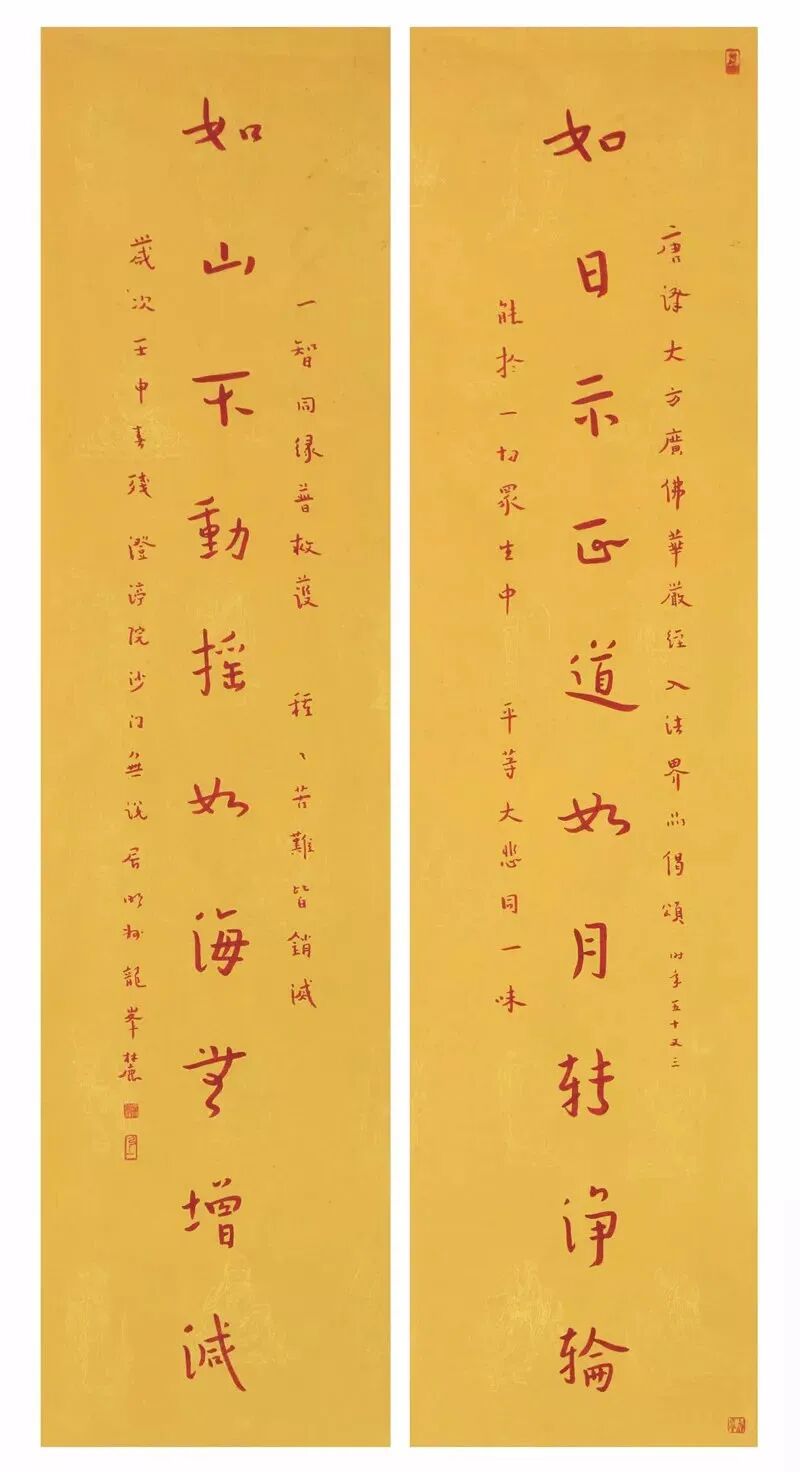 唐譯大方廣佛華嚴經入法界品偈頌 时年五十又三
如日示正道如月转净輪
能於一切眾生中 平等大悲同一味
一智同緣普救護 種〻苦難皆銷滅
如山不動摇如海無增減
歲次壬申春殘 澄渟院沙门無说居明州龍峯麓